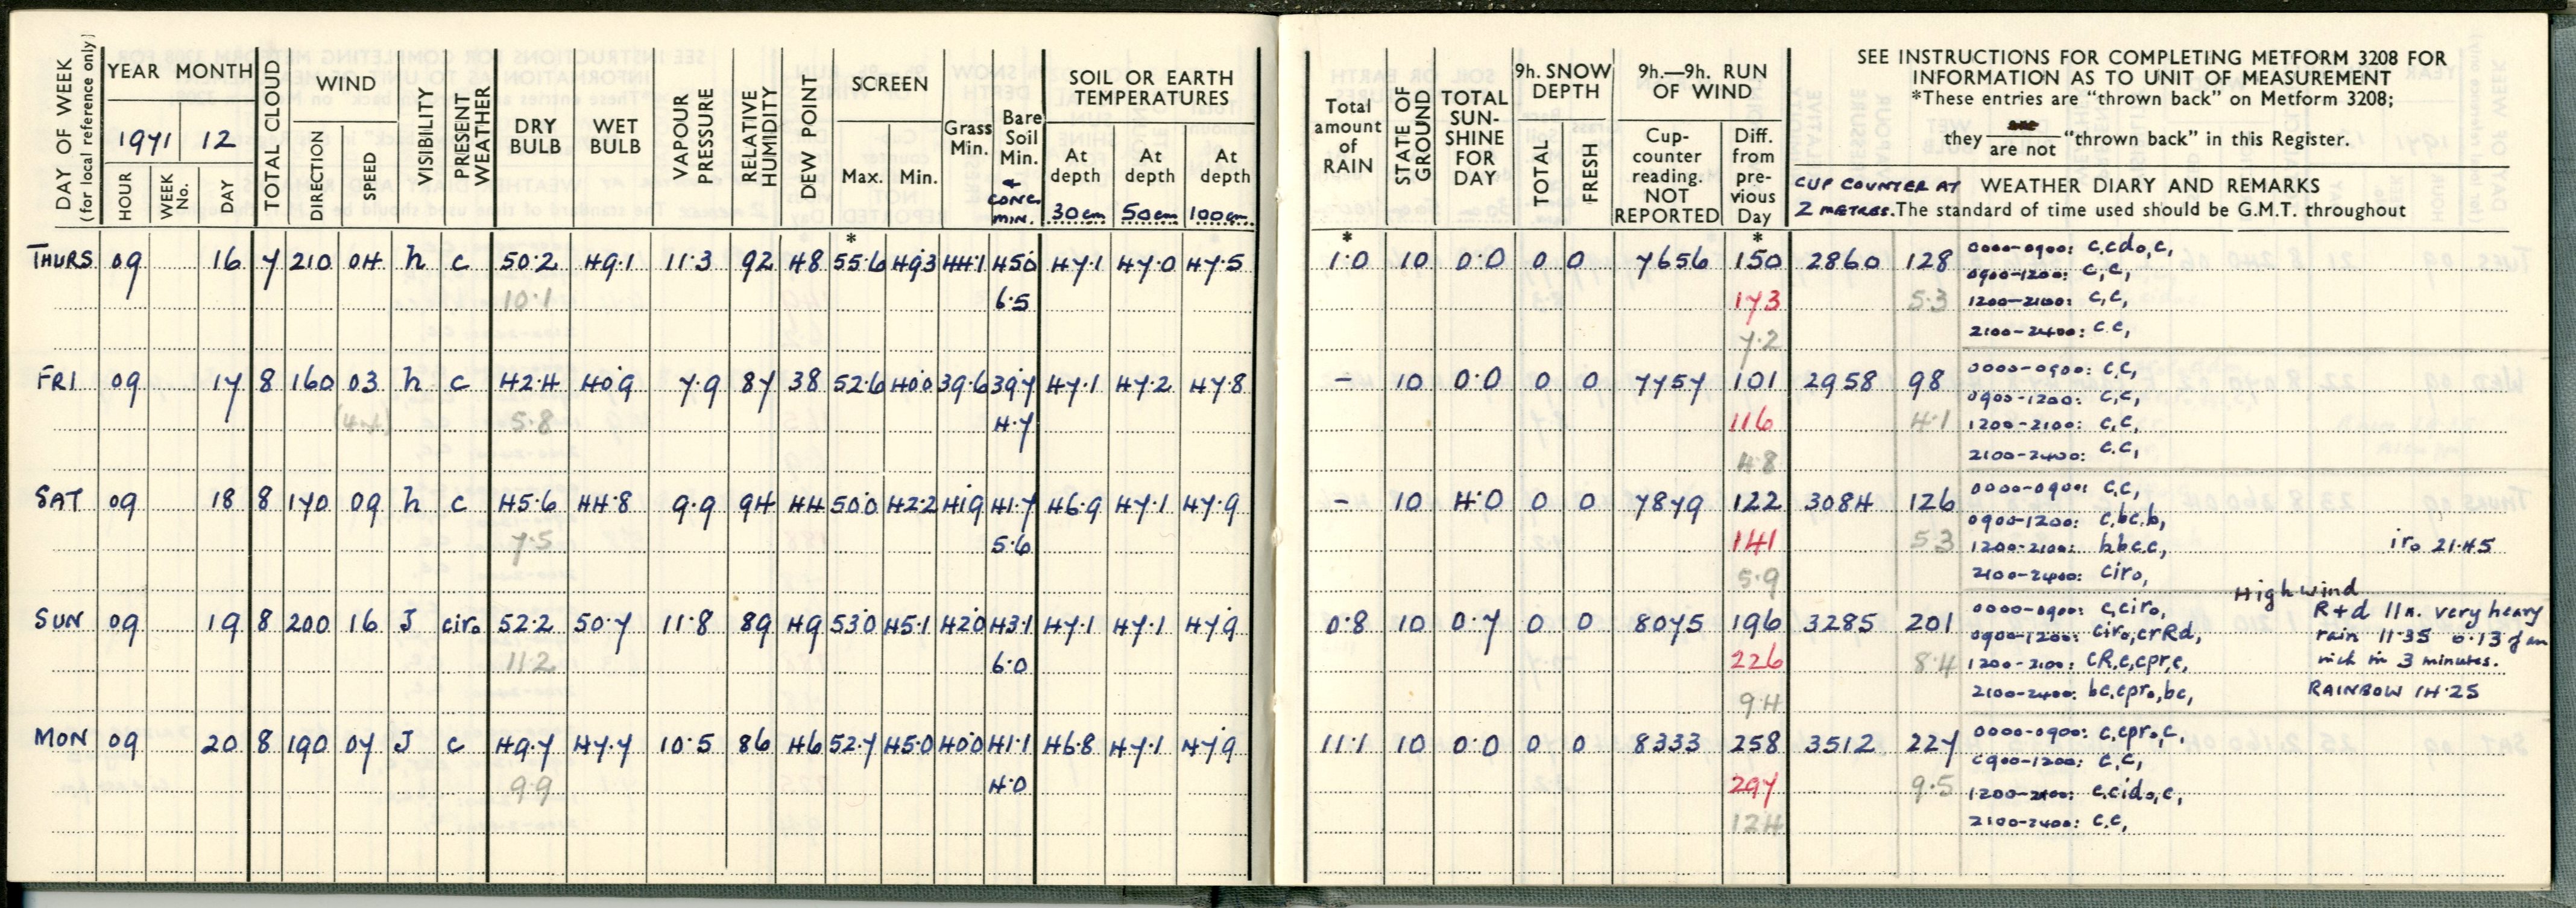 DAY OF WEEK (for local reference only)
YEAR MONTH
1971 12
HOUR WEEK No. DAY
TOTAL CLOUD
WIND
DIRECTION SPEED
VISIBILITY
PRESENT WEATHER
DRY BULB
WET BULB
VAPOUR PRESSURE
RELATIVE HUMIDITY
DEW POINT
SCREEN
Max. Min.
Grass Min.
Bare Soil Min.
& CONC. MIN.
SOIL OR EARTH TEMPERATURES
At depth 30cm At depth 50cm At depth 100cm
Total amount of RAIN
STATE OF GROUND
TOTAL SUN-SHINE FOR DAY
9h. SNOW DEPTH
TOTAL FRESH
9h.—9h. RUN OF WIND
Cup-counter reading. NOT REPORTED
Diff. from pre-vious Day
SEE INSTRUCTIONS FOR COMPLETING METFORM 3208 FOR
INFORMATION AS TO UNIT OF MEASUREMENT
*These entries are “thrown back” on Metform 3208;
they are are not “thrown back” in this Register.
CUP COUNTER AT 2 METRES.
WEATHER DIARY AND REMARKS
The standard of time used should be G.M.T. throughout
* * *
THURS 09 16 7 210 04 h c 50.2 49.1 11.3 92 48 55.6 49.3 44.1 45.0 47.1 47.0 47.5 1.0 10 0.0 0 0 7656 150 2860 128 0000-0900: c,cdo,c,
0900-1200: c,c,
10.1 6.5 173 5.3 1200-2100: c,c,
7.2 2100-2400: c,c,
FRI 09 17 8 160 03 h c 42.4 40.9 7.9 87 38 52.6 40.0 39.6 39.7 47.1 47.2 47.8 - 10 0.0 0 0 7757 101 2958 98 0000-0900: c,c,
0900-1200: c,c,
(4.4) 5.8 4.7 116 4.1 1200-2100: c,c,
4.8 2100-2400: c,c,
SAT 09 18 8 170 09 h c 45.6 44.8 9.9 94 44 50.0 42.2 41.9 41.7 46.9 47.1 47.9 - 10 4.0 0 0 7879 122 3084 126 0000-0900: c,c,
0900-1200: c,bc,b,
7.5 5.6 141 5.3 1200-2100: b,bc,c, iro 21.45
5.9 2100-2400: ciro,
High wind
SUN 09 19 8 200 16 J ciro 52.2 50.7 11.8 89 49 53.0 45.1 42.0 43.1 47.1 47.1 47.9 0.8 10 0.7 0 0 8075 196 3285 201 0000-0900: c,ciro, R+d 11a. very heavy
0900-1200: ciro,crRd, rain 11.35 0.13 of an
11.2 6.0 226 8.4 1200-2100: cR,c,cpr,c, inch in 3 minutes.
9.4 2100-2400: bc,cpro,bc, RAINBOW 14.25
MON 09 20 8 190 07 J c 49.7 47.7 10.5 86 46 52.7 45.0 40.0 41.1 46.8 47.1 47.9 11.1 10 0.0 0 0 8333 258 3512 227 0000-0900: c,cpro,c,
0900-1200: c,c,
9.9 4.0 297 9.5 1200-2100: c,cido,c,
12.4 2100-2400: c,c,